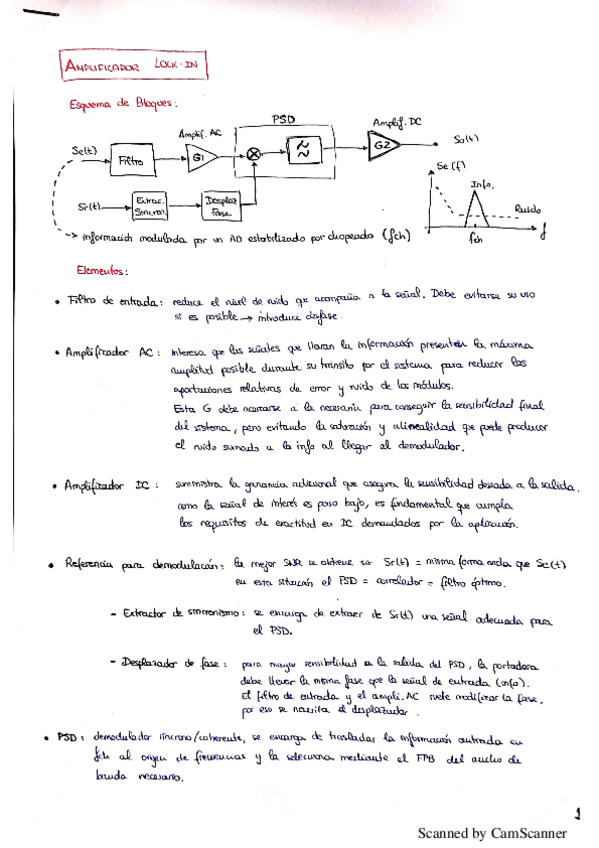 AMPLIFICADOR LOCK-IN
Esquema de Bloques:
PSD
Amplif. AC
Amplif. DC
Se(t)
Filtro
G1
G2
So(t)
Se(f)
Info.
Ruido
fch
f
Sr(t)
Extrac. Sincron.
Desplaz. Fase
información modulada por un AO estabilizado por chopeado (fch)
Elementos:
• Filtro de entrada: reduce el nivel de ruido que acompaña a la señal. Debe evitarse su uso
si es posible → introduce desfase.
• Amplificador AC: interesa que las señales que llevan la información presenten la máxima
amplitud posible durante su tránsito por el sistema para reducir las
aportaciones relativas de error y ruido de los módulos.
Esta G debe acercarse a la necesaria para conseguir la sensibilidad final
del sistema, pero evitando la saturación y alinealidad que puede producir
el ruido sumado a la info al llegar al demodulador.
• Amplificador DC: suministra la ganancia adicional que asegura la sensibilidad deseada a la salida.
como la señal de interés es paso bajo, es fundamental que cumpla
los requisitos de exactitud en DC demandados por la aplicación.
• Referencia para demodulación: la mejor SNR se obtiene si Sr(t) = misma forma onda que Se(t)
en esta situación el PSD = correlador = filtro óptimo.
- Extractor de sincronismo: se encarga de extraer de Sr(t) una señal adecuada para
el PSD.
- Desplazador de fase: para mayor sensibilidad a la salida del PSD, la portadora
debe llevar la misma fase que la señal de entrada (info).
El filtro de entrada y el ampli. AC suele modificar la fase,
por eso se necesita el desplazador.
• PSD: demodulador síncrono/coherente, se encarga de trasladar la información centrada en
fch al origen de frecuencias y la selecciona mediante el FPB del ancho de
banda necesario.
1
Scanned by CamScanner